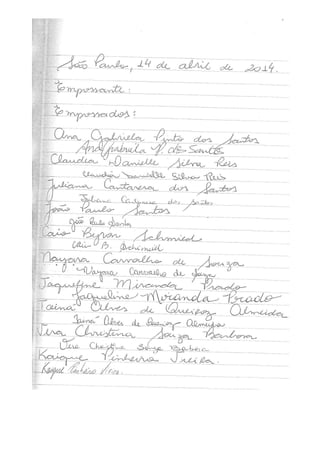 São Paulo, 14 de abril de 2014.
Empossante:
Empossados:
Ana Gabriela Pinto dos Santos
Ana Gabriela P. dos Santos
Claudia Danielle Silva Reis
Claudia Danielle Silva Reis
Juliana Cantarera dos Santos
Juliana dos Santos
João Paulo Santos
João Paulo Santos
Caio Byron Schmied
Caio B. Schmiedt
Nayara Carvalho de Souza
Nayara Carvalho de Souza
Jaqueline Miranda Prado
Jaqueline Miranda Prado
Tainá Alves de Queiroz Almeida
Tainá Alves de Queiroz Almeida
Vera Christina Souza Barbosa
Vera Christina Souza Barbosa
Kaique Pinheiro
Kaique Pinheiro